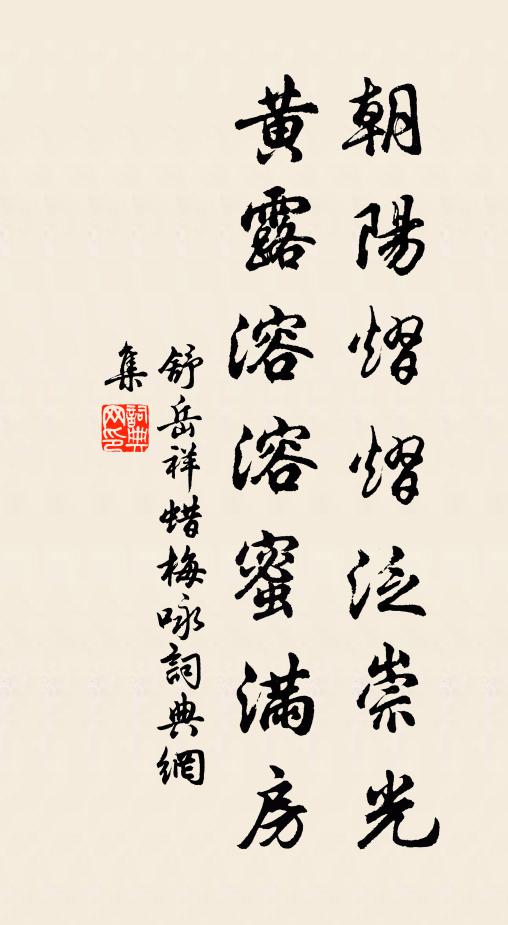 朝陽熠熠泛崇光
黃露溶溶蜜滿房
舒岳祥蜡梅咏詞典網
集
詞典網印